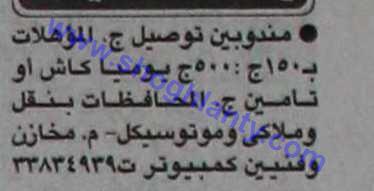 ● مندوبين توصيل ج. المؤهلات
بـ١٥٠ج: ٥٠٠ج يوميا كاش او
تامين ج. المحافظات بنقل
وملاكى وموتوسيكل- م. مخازن
وفنيين كمبيوتر ت٣٣٨٣٤٩٣٩
www.shoghlanty.com